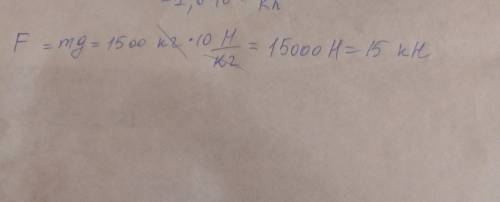 F = mg = 1500 кг · 10 Н/кг = 15000 Н = 15 кН